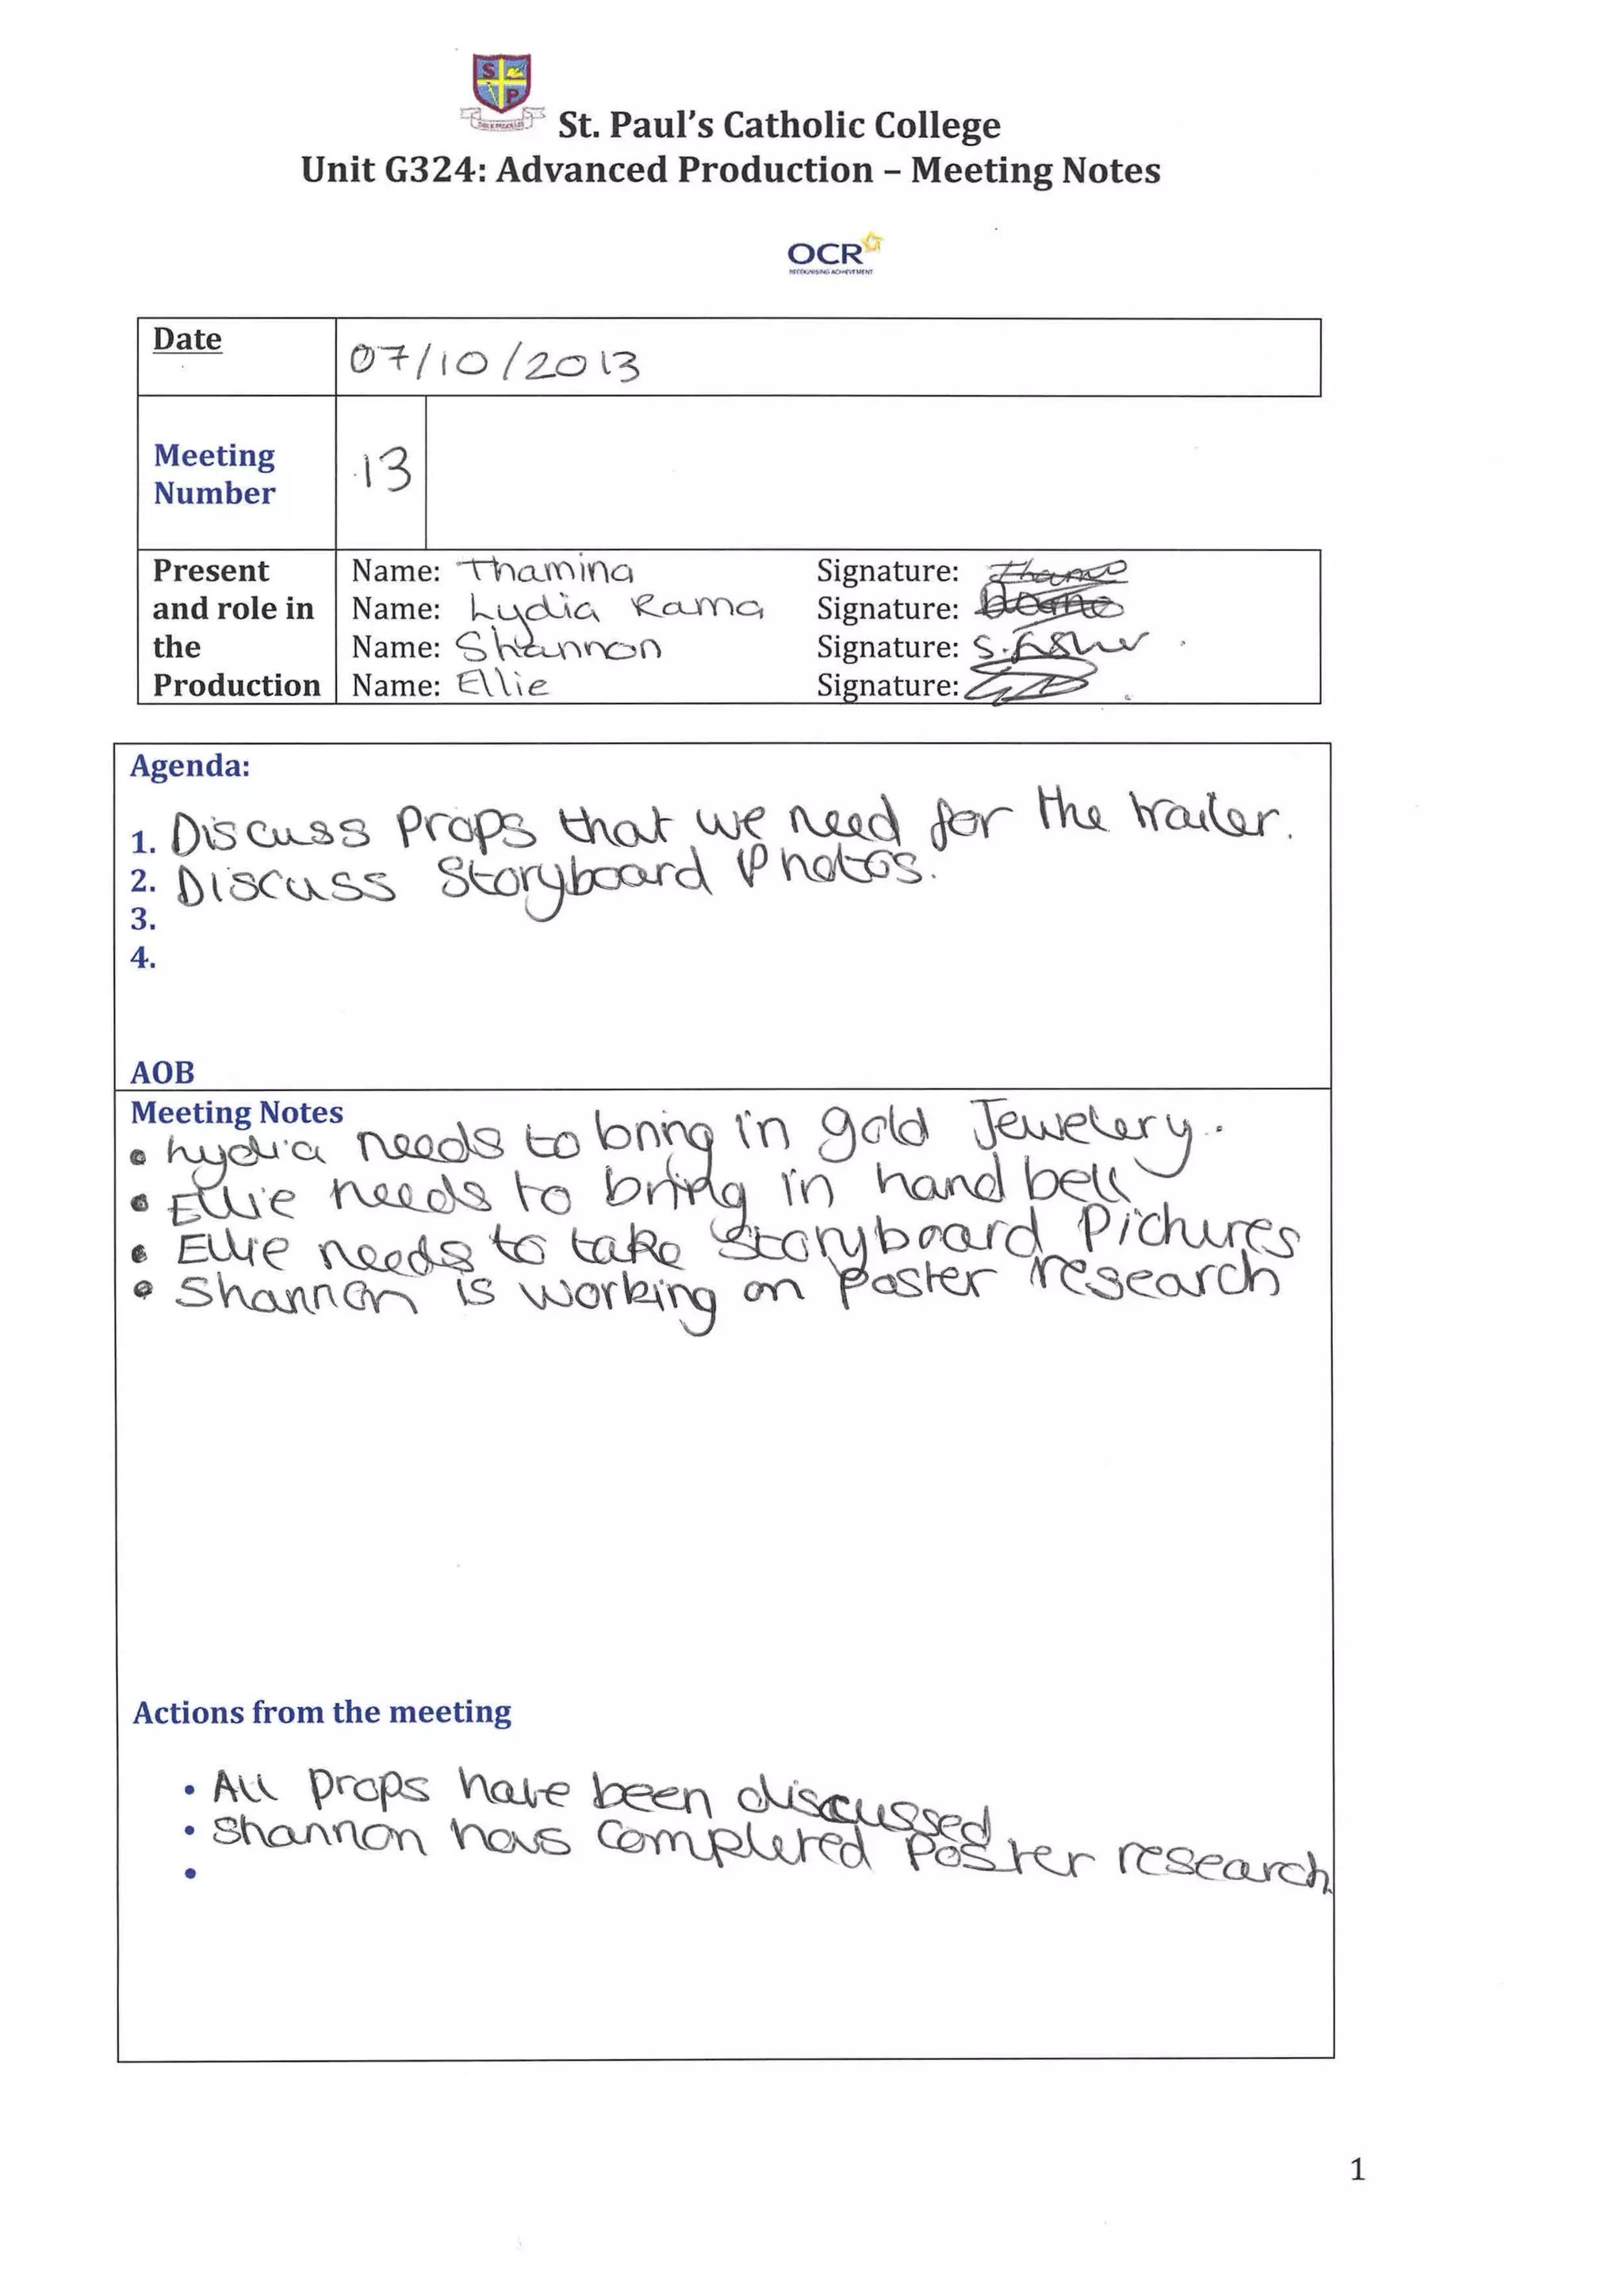 St. Paul's Catholic College
Unit G324: Advanced Production – Meeting Notes
OCR
RECOGNISING ACHIEVEMENT
Date
07/10/2013
Meeting
Number
13
Present
and role in
the
Production
Name: Thamina Signature:
Name: Lydia Rama Signature:
Name: Shannon Signature: S. Fisher
Name: Ellie Signature:
Agenda:
1. Discuss Props that we need for the trailer.
2. Discuss Storyboard Photos.
3.
4.
AOB
Meeting Notes
• Lydia needs to bring in gold Jewelery.
• Ellie needs to bring in hand bell
• Ellie needs to take Storyboard Pictures
• Shannon is working on Poster research
Actions from the meeting
• All props have been discussed
• Shannon has completed Poster research.
•
1